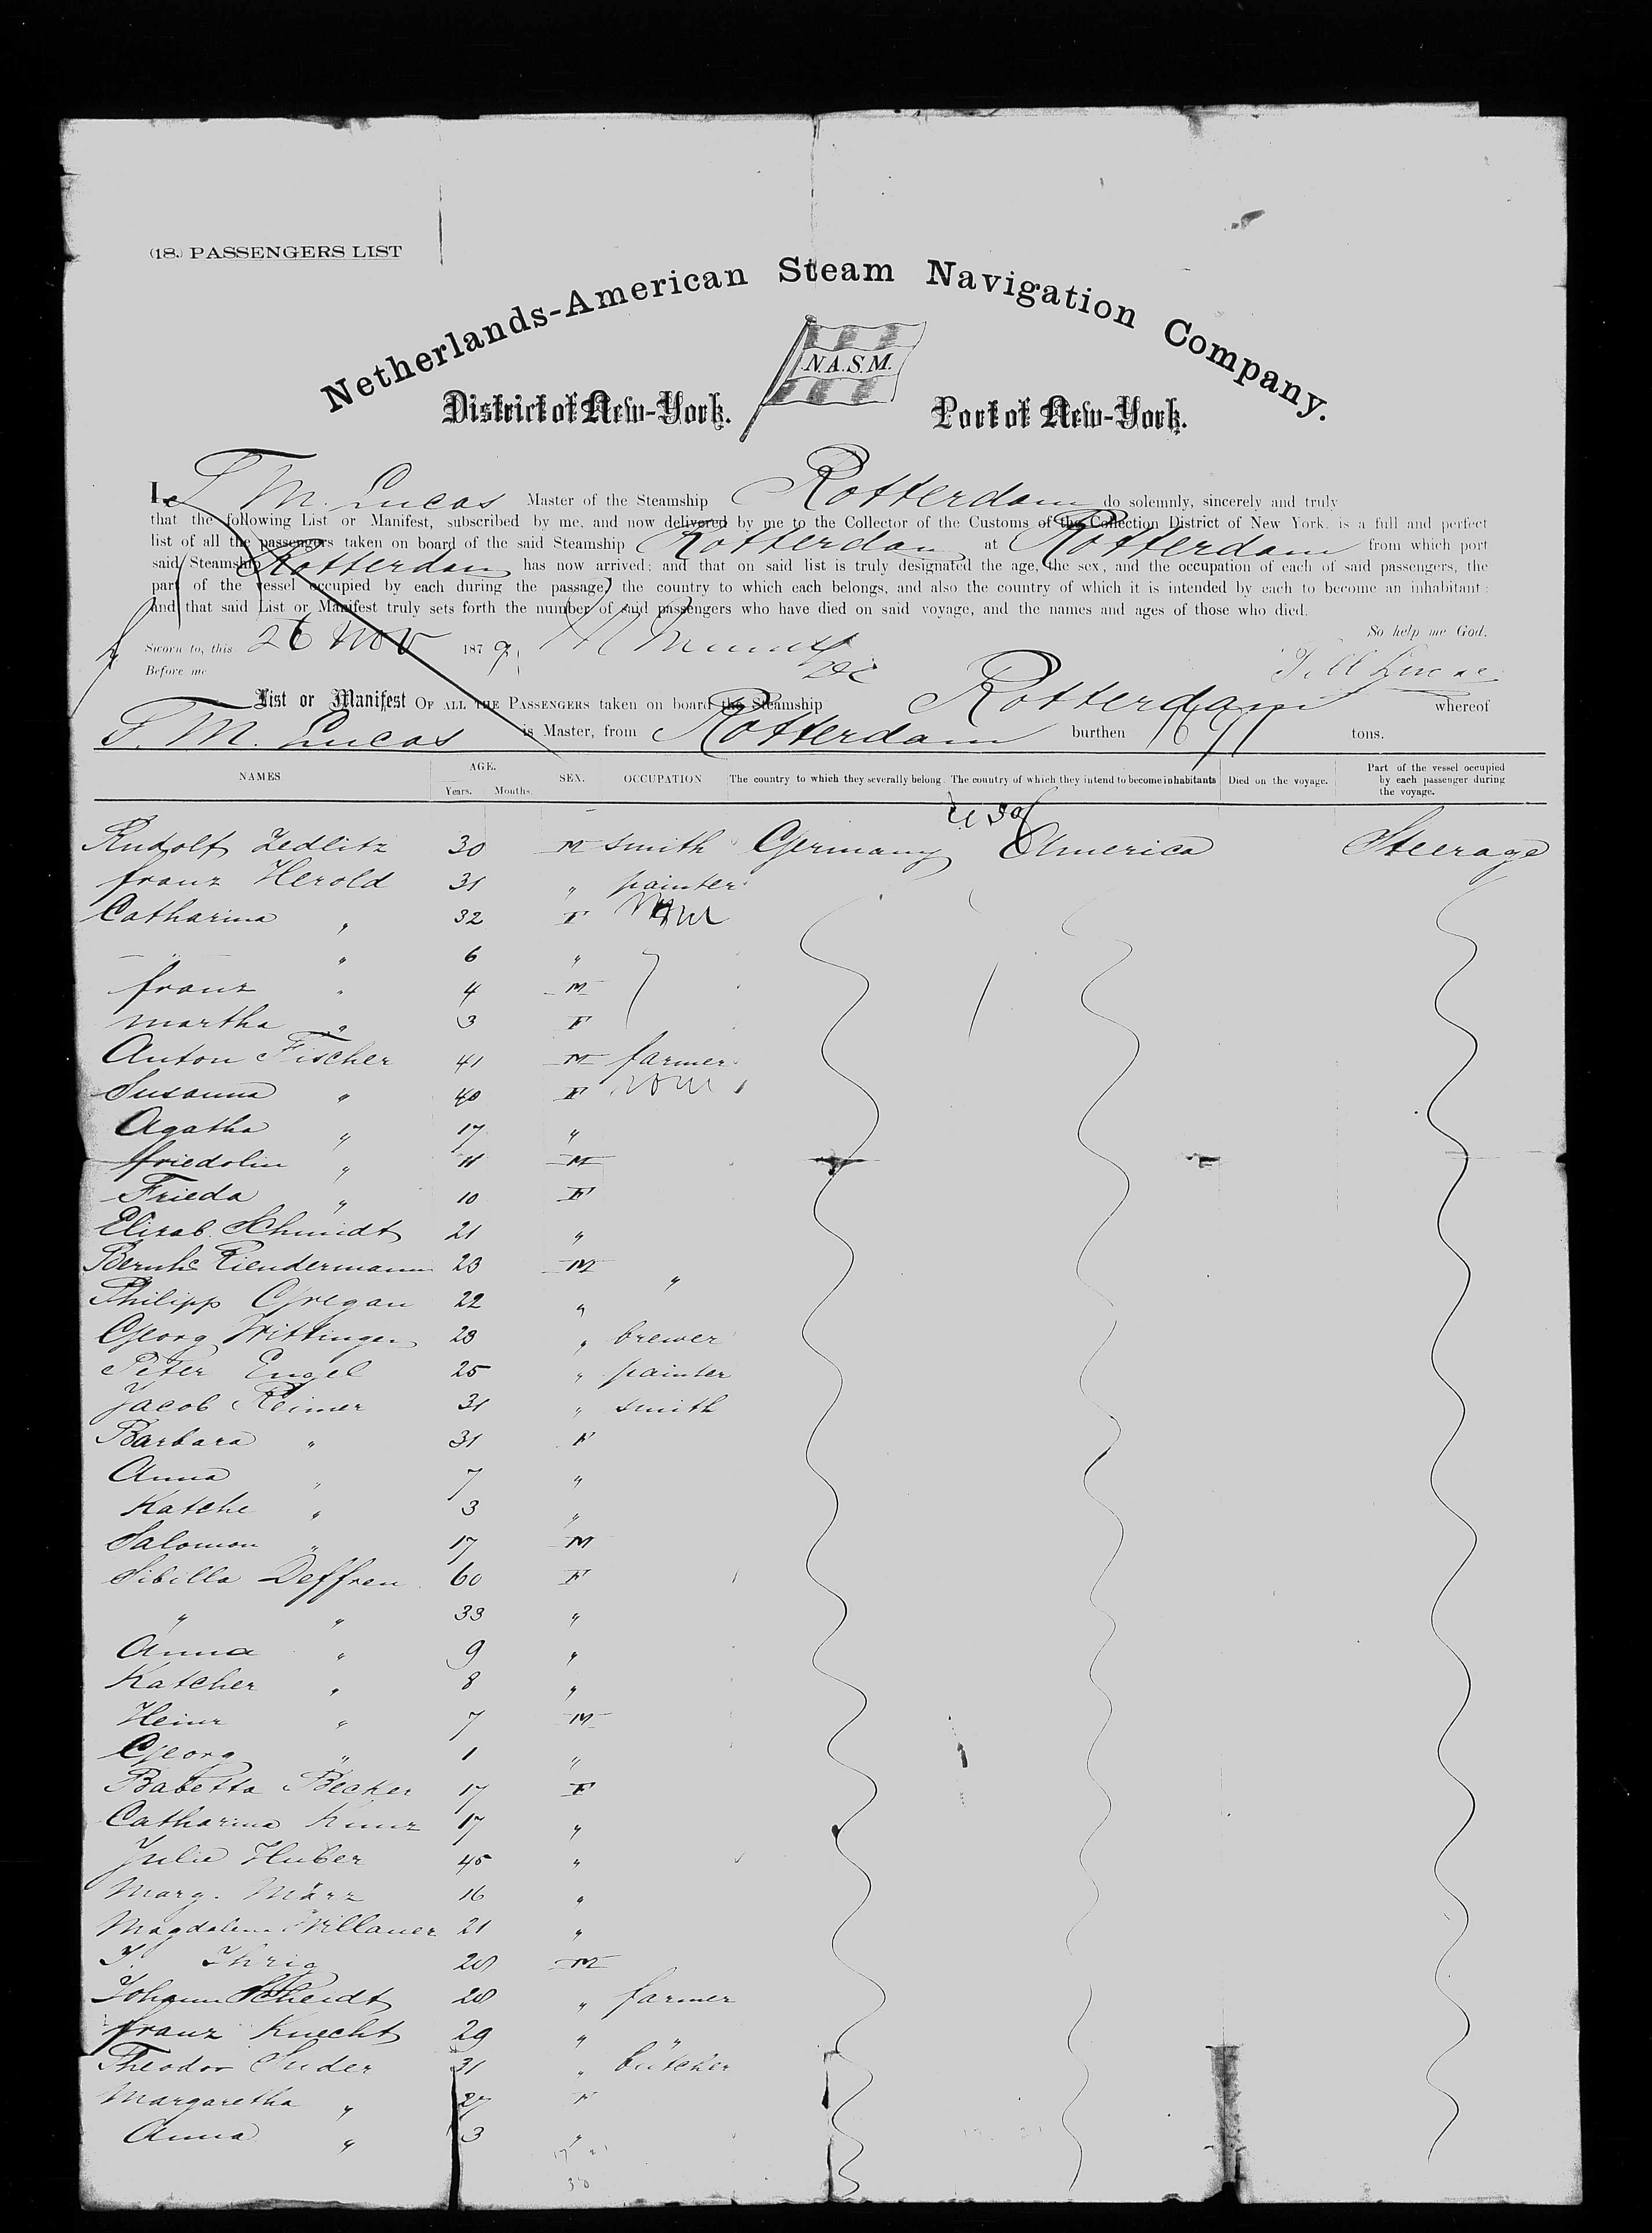 (18.) PASSENGERS LIST
Netherlands-American Steam Navigation Company.
N.A.S.M.
District of New-York. Port of New-York.
I, T. M. Lucas Master of the Steamship Rotterdam do solemnly, sincerely and truly
that the following List or Manifest, subscribed by me, and now delivered by me to the Collector of the Customs of the Collection District of New York, is a full and perfect
list of all the passengers taken on board of the said Steamship Rotterdam at Rotterdam from which port
said Steamship Rotterdam has now arrived: and that on said list is truly designated the age, the sex, and the occupation of each of said passengers, the
part of the vessel occupied by each during the passage, the country to which each belongs, and also the country of which it is intended by each to become an inhabitant:
and that said List or Manifest truly sets forth the number of said passengers who have died on said voyage, and the names and ages of those who died.
So help me God.
Sworn to, this 26 Nov 1879
Before me
List or Manifest OF ALL THE PASSENGERS taken on board the Steamship Rotterdam whereof
T. M. Lucas is Master, from Rotterdam burthen tons.
NAMES AGE. Years. Months. SEX. OCCUPATION The country to which they severally belong The country of which they intend to become inhabitants Died on the voyage. Part of the vessel occupied by each passenger during the voyage.
U S of
Rudolf Zedlitz 30 M smith Germany America Steerage
franz Herold 31 " painter
Catharina " 32 F None
" " 6 "
franz " 4 M
martha " 3 F
Anton Fischer 41 M farmer
Susanna " 40 F None
Agatha " 17 "
friedolin " 11 M
Frieda " 10 F
Elisab. Schmidt 21 "
Bernhd 23 M "
Philipp Gregan 22 "
Georg Wittinger 23 " brewer
Peter Engel 25 " painter
Jacob Reimer 31 " smith
Barbara " 31 F
Anna " 7 "
Katche " 3 "
Salomon " 17 M
Sibilla Deffren 60 F
" " 33 "
Anna " 9 "
Katcher " 8 "
Heinr " 7 M
Georg " 1 "
Babetta Becker 17 F
Catharina Kunz 17 "
Julie Huber 45 "
Marg. März 16 "
Magdalena Willauer 21 "
J. Ihrig 28 M
Johann Scheidt 28 " farmer
franz Knecht 29 " "
Theodor Suder 31 " bütcher
Margaretha " 27 F
Anna " 3 "